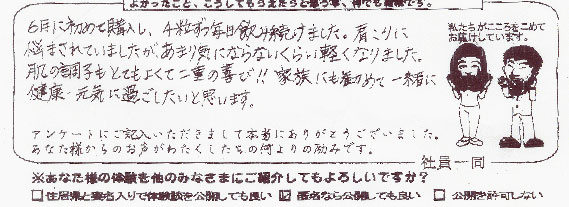 よかったこと、こうしてもらえたらと思う事、何でも結構です。
6月に初めて購入し、4粒ずつ毎日飲み続けました。肩こりに
悩まされていましたがあまり気にならないくらい軽くなりました。
肌の調子もとてもよくて二重の喜び!! 家族にも勧めて一緒に
健康・元気に過ごしたいと思います。
私たちがこころをこめて
お届けしています。
アンケートにご記入いただきまして本当にありがとうございました。
あなた様からのお声がわたくしたちの何よりの励みです。
社員一同
※あなた様の体験を他のみなさまにご紹介してもよろしいですか?
□住居県と実名入りで体験談を公開しても良い ☑匿名なら公開しても良い □公開を許可しない